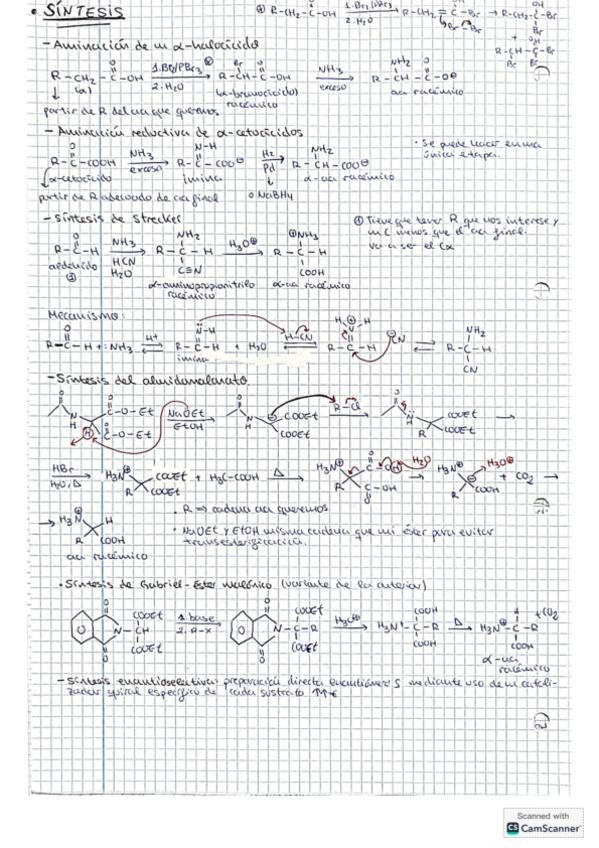 • SÍNTESIS
R-CH₂-C-OH 1. Br₂/PBr₃ 2. H₂O
- Aminación de un α-haloácido
R-CH₂-C-OH 1. Br₂/PBr₃ 2. H₂O R-CH-C-OH NH₃ exceso R-CH-C-O⊖
(α-bromoácido) racémico aa racémico
partir de R del aa que queremos
- Aminación reductiva de α-cetoácidos
• Se puede hacer en una única etapa.
R-C-COOH NH₃ exceso R-C-COO⊖ H₂ Pd R-CH-COO⊖
α-cetoácido imina o NaBH₄ α-aa racémico
partir de R adecuado de aa final
- Síntesis de Strecker
① Tiene que tener R que nos interese y un C menos que el aa final. va a ser el Cα
R-C-H NH₃ HCN H₂O R-C-H H₃O⊕ R-C-H
NH₂ C≡N ⊕NH₃ COOH
aldehído α-aminopropionitrilo racémico α-aa racémico
Mecanismo:
R-C-H + :NH₃ H⁺ R-C-H + H₂O H-CN R-C-H ⊖CN R-C-H
imina NH₂ CN
- Síntesis del amidomalonato
C-O-Et C-O-Et NaOEt EtOH COOEt COOEt R-Cl COOEt COOEt
HBr H₂O, Δ H₃N⊕ COOEt COOEt + H₃C-COOH Δ H₃N⊕ C-OH H₂O H₃N⊕ H₃O⊕ COOH + CO₂
H₃N⊕ H R COOH
aa racémico
• R ⇒ cadena aa queremos
• NaOEt y EtOH misma cadena que mi éster para evitar transesterificación.
• Síntesis de Gabriel-Ester malónico (variante de la anterior)
COOEt N-CH COOEt 1. base 2. R-X COOEt N-C-R COOEt H₃O⊕ COOH C-R COOH Δ H₃N⊕-C-R COOH + CO₂
α-aa racémico
- Síntesis enantioselectiva: preparación directa enantiómero S mediante uso de un catalizador quiral específico de cada sustrato ↑↑€
Scanned with
CS CamScanner